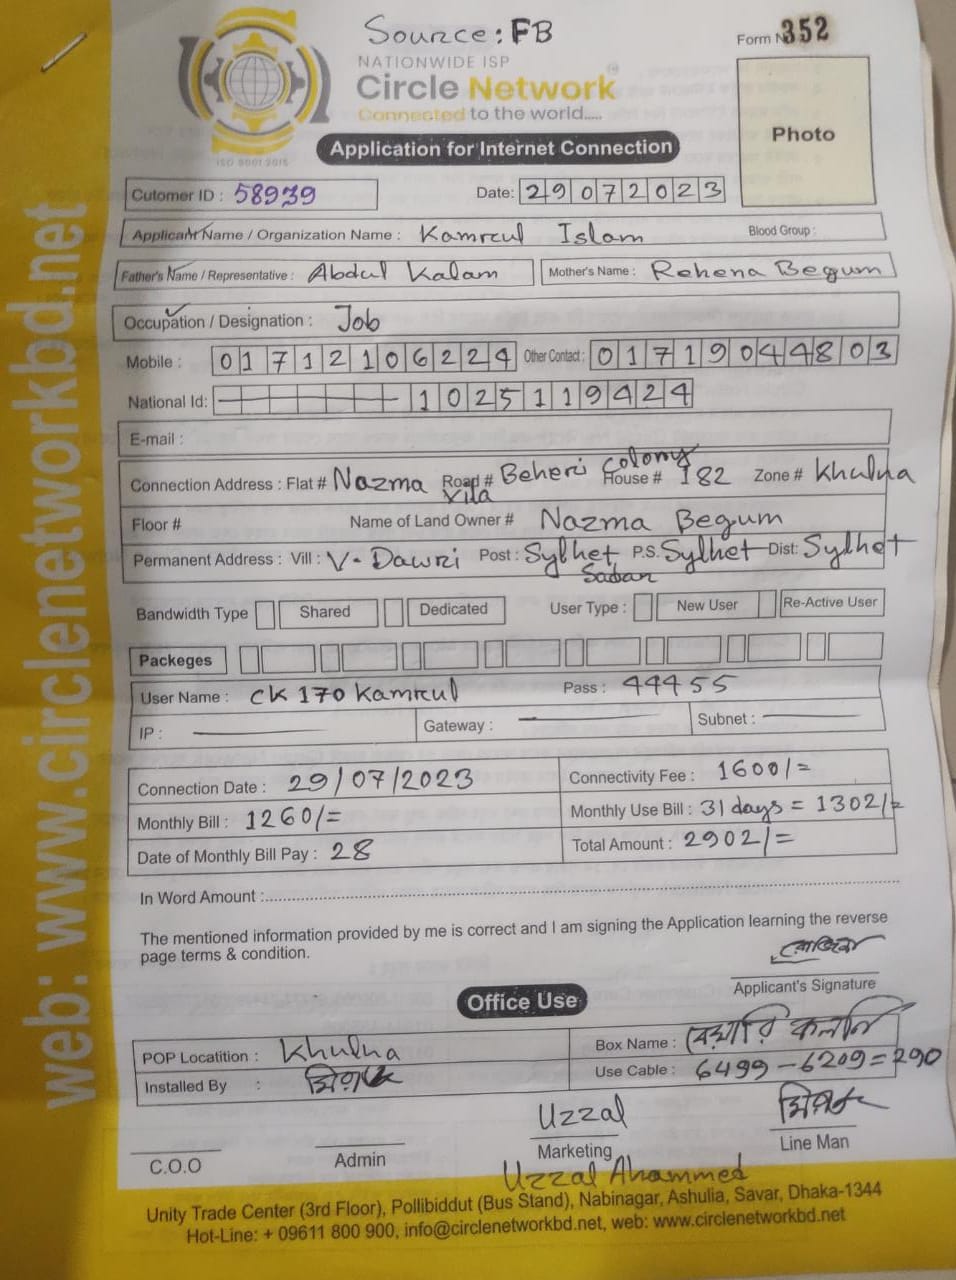 Source: FB
Form N 352
NATIONWIDE ISP
Circle Network
Connected to the world.....
ISO 9001:2015
Photo
Application for Internet Connection
Cutomer ID : 58939
Date: 29072023
Applicant Name / Organization Name : Kamrul Islam Blood Group :
Father's Name / Representative : Abdul Kalam Mother's Name : Rehena Begum
Occupation / Designation : Job
Mobile : 01712106224 Other Contact : 01719044803
National Id: 1025119424
E-mail :
Connection Address : Flat # Nazma Vila Road # Beheri Colony House # 182 Zone # Khulna
Floor # Name of Land Owner # Nazma Begum
Permanent Address : Vill : V- Dawri Post : Sylhet Sadar P.S. Sylhet Dist: Sylhet
Bandwidth Type Shared Dedicated User Type : New User Re-Active User
Packeges
User Name : CK170Kamrul Pass : 44455
IP : Gateway : Subnet :
Connection Date : 29/07/2023 Connectivity Fee : 1600/=
Monthly Bill : 1260/= Monthly Use Bill : 31 days = 1302/=
Date of Monthly Bill Pay : 28 Total Amount : 2902/=
In Word Amount :
The mentioned information provided by me is correct and I am signing the Application learning the reverse
page terms & condition.
Applicant's Signature
Office Use
POP Locatition : Khulna Box Name : বিহারি কলনি
Installed By : Use Cable : 6499-6209=290
Uzzal
C.O.O Admin Marketing Line Man
Uzzal Ahammed
Unity Trade Center (3rd Floor), Pollibiddut (Bus Stand), Nabinagar, Ashulia, Savar, Dhaka-1344
Hot-Line: + 09611 800 900, info@circlenetworkbd.net, web: www.circlenetworkbd.net
web: www.circlenetworkbd.net